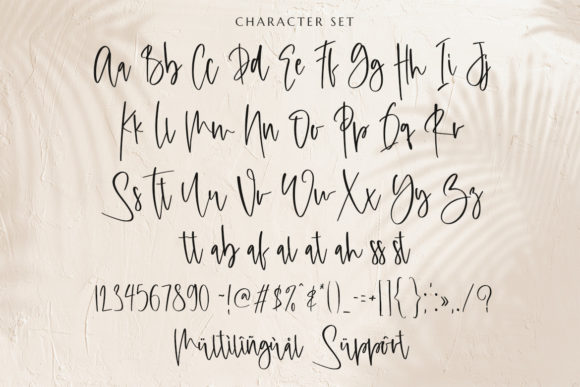 CHARACTER SET
Aa Bb Cc Dd Ee Ff Gg Hh Ii Jj
Kk Ll Mm Nn Oo Pp Qq Rr
Ss Tt Uu Vv Ww Xx Yy Zz
tt ab af al at ah ss st
1234567890 ~!@#$%^&*()_-=+[]{};:»,./?
Mültilîñgùål Süppört